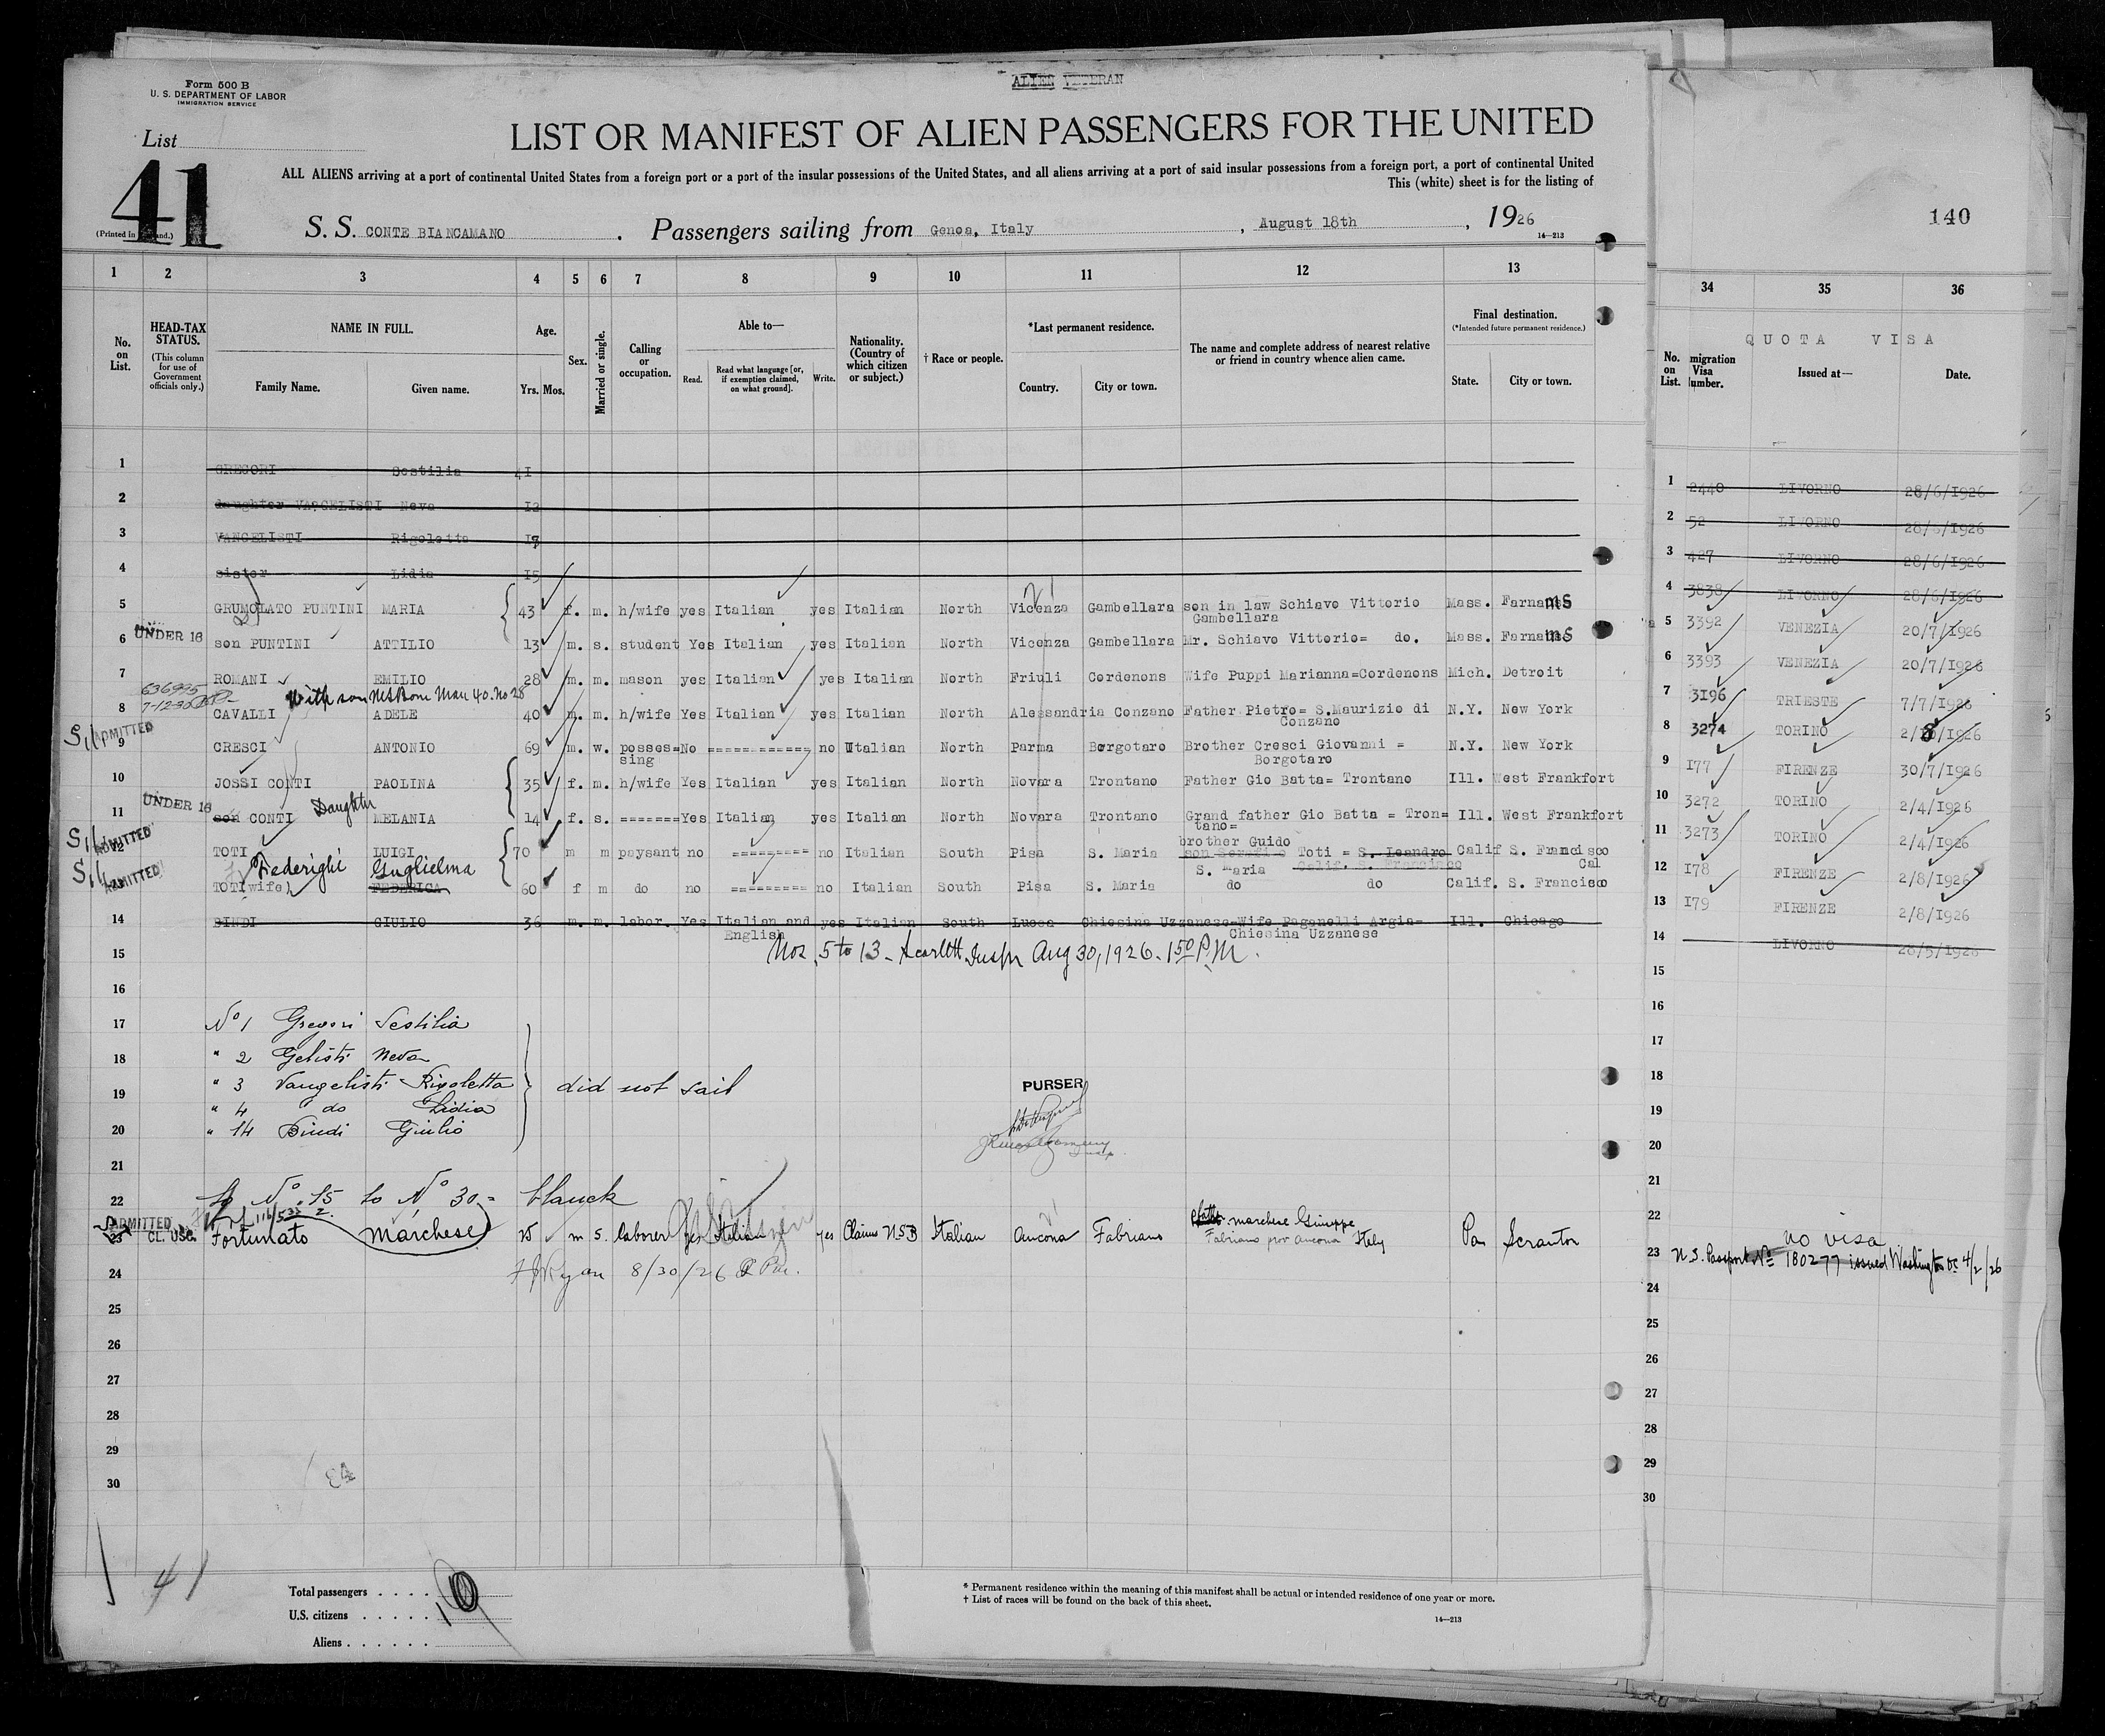 Form 500 B
U. S. DEPARTMENT OF LABOR
IMMIGRATION SERVICE
ALIEN VETERAN
List
41
(Printed in
LIST OR MANIFEST OF ALIEN PASSENGERS FOR THE UNITED
ALL ALIENS arriving at a port of continental United States from a foreign port or a port of the insular possessions of the United States, and all aliens arriving at a port of said insular possessions from a foreign port, a port of continental United
This (white) sheet is for the listing of
S. S. CONTE BIANCAMANO . Passengers sailing from Genoa, Italy , August 18th , 1926
14—213
140
1 2 3 4 5 6 7 8 9 10 11 12 13 34 35 36
No. on List. HEAD-TAX STATUS. (This column for use of Government officials only.) NAME IN FULL. Family Name. Given name. Age. Yrs. Mos. Sex. Married or single. Calling or occupation. Able to— Read. Read what language [or, if exemption claimed, on what ground]. Write. Nationality. (Country of which citizen or subject.) † Race or people. *Last permanent residence. Country. City or town. The name and complete address of nearest relative or friend in country whence alien came. Final destination. (*Intended future permanent residence.) State. City or town.
No. on List. migration Visa umber. QUOTA VISA Issued at— Date.
1 GREGORI Sestilia 41 1 2440 LIVORNO 28/6/1926
2 daughter VANGELISTI Neva 12 2 52 LIVORNO 28/6/1926
3 VANGELISTI Rigoletta 17 3 427 LIVORNO 28/6/1926
4 sister Lidia 15 4 3838 LIVORNO 28/6/1926
5 GRUMOLATO PUNTINI MARIA 43 f. m. h/wife yes Italian yes Italian North Vicenza Gambellara son in law Schiavo Vittorio Gambellara Mass. Farnams 5 3392 VENEZIA 20/7/1926
UNDER 16
6 son PUNTINI ATTILIO 13 m. s. student Yes Italian yes Italian North Vicenza Gambellara Mr. Schiavo Vittorio= do. Mass. Farnams 6 3393 VENEZIA 20/7/1926
7 ROMANI EMILIO 28 m. m. mason yes Italian yes Italian North Friuli Cordenons Wife Puppi Marianna=Cordenons Mich. Detroit 7 3196 TRIESTE 7/7/1926
636995
7-12-30
With son
Man 40. No 28
8 CAVALLI ADELE 40 m. m. h/wife Yes Italian yes Italian North Alessandria Conzano Father Pietro= S.Maurizio di Conzano N.Y. New York 8 3274 TORINO 1926
S.I. ADMITTED
9 CRESCI ANTONIO 69 m. w. posses=sing No ============ no Italian North Parma Borgotaro Brother Cresci Giovanni = Borgotaro N.Y. New York 9 177 FIRENZE 30/7/1926
10 JOSSI CONTI PAOLINA 35 f. m. h/wife Yes Italian yes Italian North Novara Trontano Father Gio Batta= Trontano Ill. West Frankfort 10 3272 TORINO 2/4/1926
UNDER 16
11 son Daughter CONTI MELANIA 14 f. s. ======= Yes Italian yes Italian North Novara Trontano Grand father Gio Batta = Tron=tano= Ill. West Frankfort 11 3273 TORINO 2/4/1926
S.I. ADMITTED
12 TOTI LUIGI 70 m m paysant no ========= no Italian South Pisa S. Maria brother Guido Toti = S. Leandro S. Maria Calif. S. Francisco Calif S. Francisco Cal 12 178 FIRENZE 2/8/1926
S.I. ADMITTED
Federighi Guglielma
13 TOTI(wife) FEDERICA 60 f m do no ========= no Italian South Pisa S. Maria do do Calif. S. Francisco 13 179 FIRENZE 2/8/1926
14 BINDI GIULIO 36 m. m. labor. Yes Italian and English yes Italian South Lucca Chiesina Uzzanese=Wife Paganelli Argia= Chiesina Uzzanese Ill. Chicago 14 LIVORNO 28/5/1926
15 Nos. 5 to 13 - Scarlett Inspr Aug 30, 1926. 1 50 P.M. 15
16 16
17 No 1 Gregori Sestilia 17
18 " 2 Gelisti Neva 18
19 " 3 Vangelisti Rigoletta did not sail PURSER 19
" 4 do Lidia
20 " 14 Bindi Giulio 20
21 21
22 No 15 to No 30 = blanck 22
ADMITTED CL. USC.
23 Fortunato Marchese 25 m S. laborer yes Italian yes Claims USB Italian Ancona Fabriano father Marchese Giuseppe Fabriano prov Ancona Italy Pa Scranton 23 no visa
U.S. Passport No 180277 issued Washington DC 4/2/26
24 Ryan 8/30/26 24
25 25
26 26
27 27
28 28
29 29
30 30
41
Total passengers . . . . 10
U.S. citizens . . . . .
Aliens . . . . . .
* Permanent residence within the meaning of this manifest shall be actual or intended residence of one year or more.
† List of races will be found on the back of this sheet.
14—213